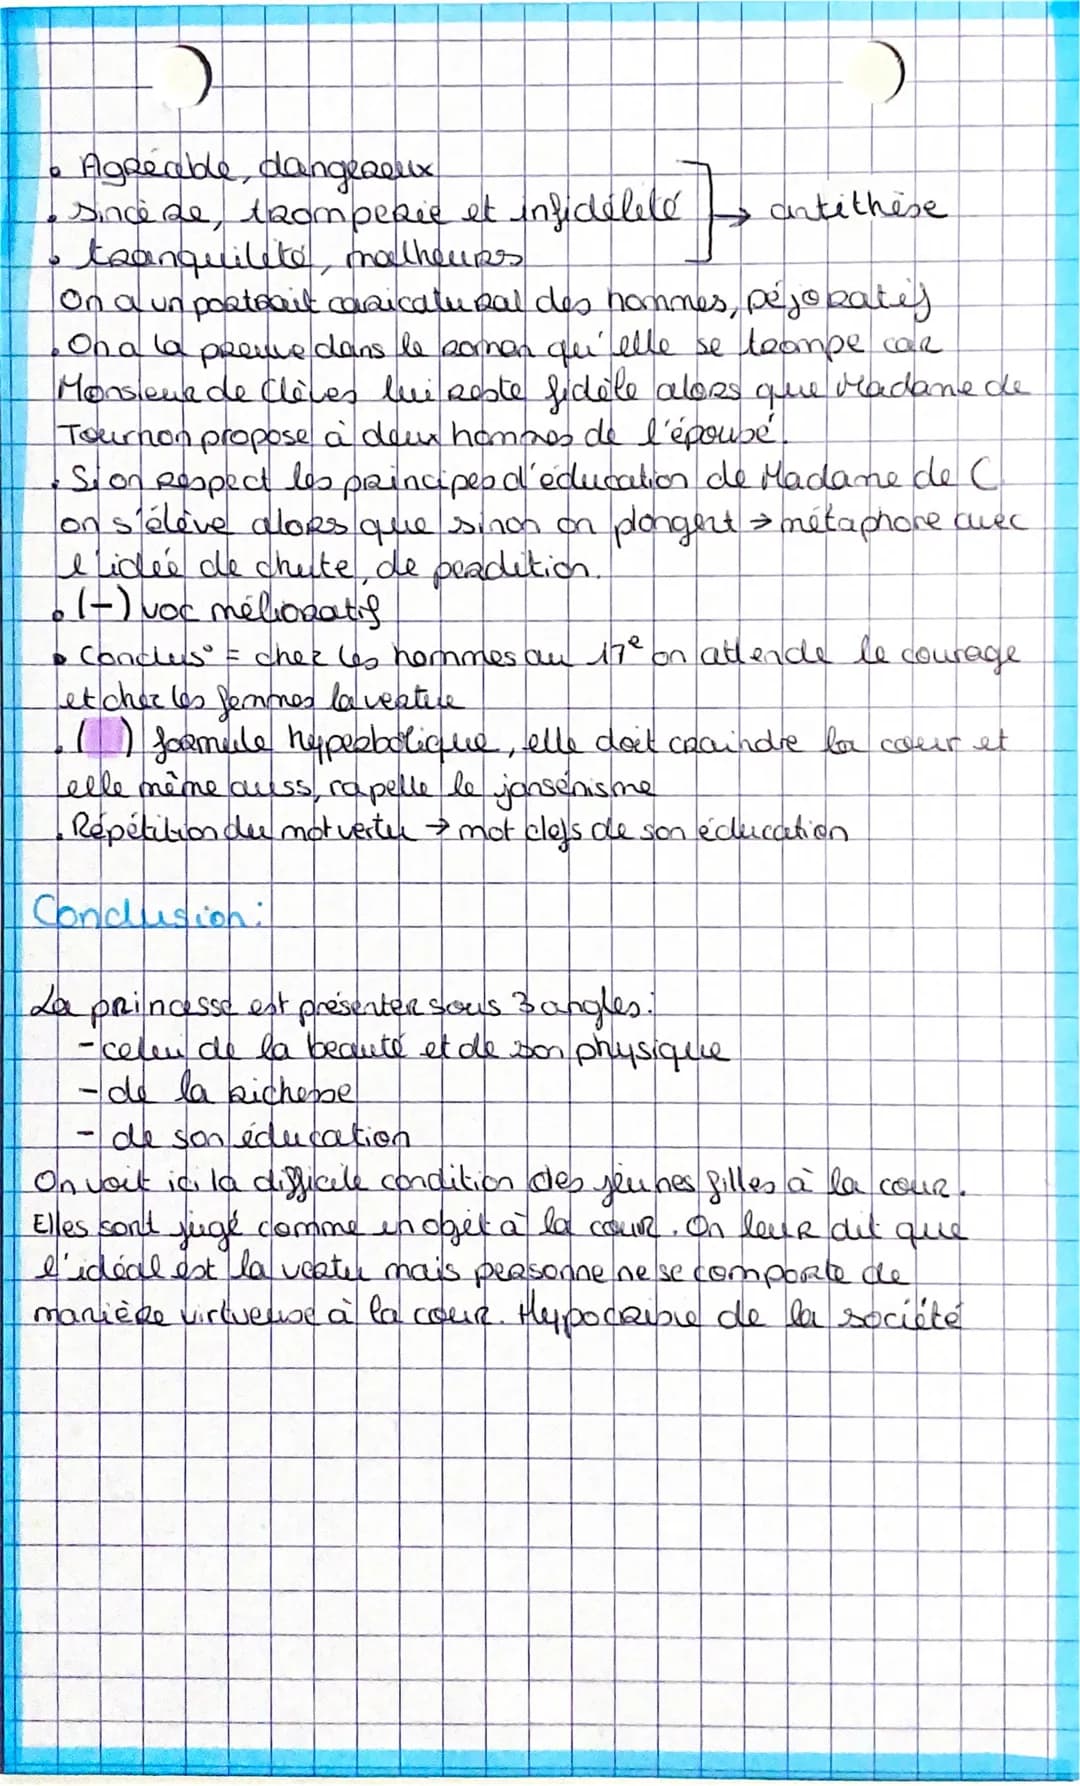 • Agréable, dangereux
• sincère, tromperie et infidélité → antithèse
• tranquilité, malheurs
On a un portrait caricatural des hommes, péjoratif
• On a la preuve dans le roman qu'elle se trompe car
Monsieur de Clèves lui reste fidèle alors que Madame de
Tournon propose à deux hommes de l'épousé.
• Si on respect les principes d'éducation de Madame de C
on s'élève alors que sinon on plongent → métaphore avec
l'idée de chute, de perdition.
• (-) voc mélioratif
• Conclus° = chez les hommes au 17e on attende le courage
et chez les femmes la vertue
• ( ) formule hyperbolique, elle doit craindre la cour et
elle même aussi, rapelle le jansénisme
• Répétition du mot vertu → mot clefs de son éducation
Conclusion:
La princesse est présenter sous 3 angles:
- celui de la beauté et de son physique
- de la richesse
- de son éducation
On voit ici la difficile condition des jeunes filles à la cour.
Elles sont jugé comme un objet à la cour. On leur dit que
l'idéal est la vertu mais personne ne se comporte de
manière virtueuse à la cour. Hypocrisie de la société